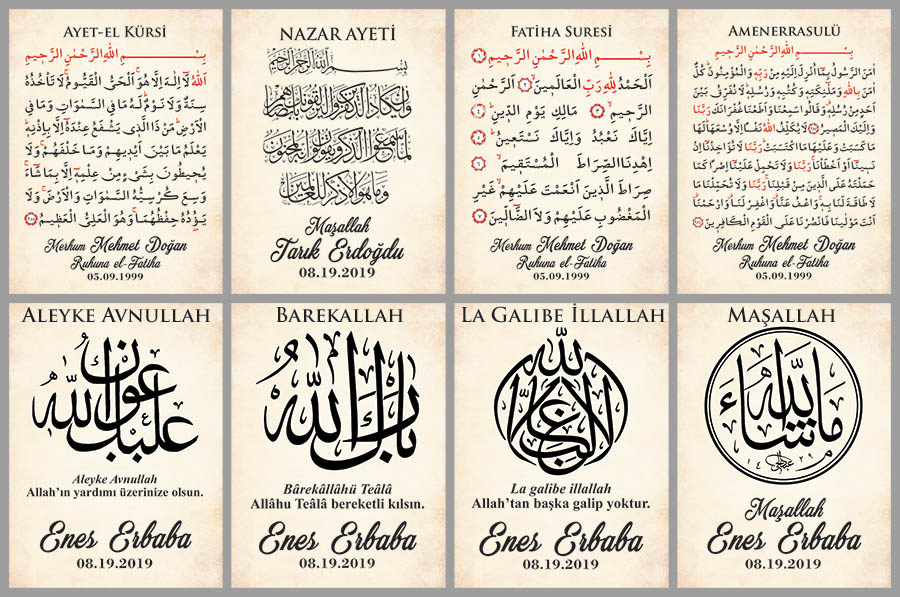 AYET-EL KÜRSİ
بِسْمِ اللهِ الرَّحْمٰنِ الرَّحِيمِ
اَللهُ لَا اِلٰهَ اِلَّا هُوَ اَلْحَيُّ الْقَيُّومُ لَا تَأْخُذُهُ
سِنَةٌ وَلَا نَوْمٌ لَهُ مَا فِي السَّمٰوَاتِ وَمَا فِي
الْاَرْضِ مَنْ ذَا الَّذِي يَشْفَعُ عِنْدَهُ اِلَّا بِاِذْنِهِ
يَعْلَمُ مَا بَيْنَ اَيْدِيهِمْ وَمَا خَلْفَهُمْ وَلَا
يُحِيطُونَ بِشَيْءٍ مِنْ عِلْمِهِ اِلَّا بِمَا شَاءَ
وَسِعَ كُرْسِيُّهُ السَّمٰوَاتِ وَالْاَرْضَ وَلَا
يَؤُدُهُ حِفْظُهُمَا وَهُوَ الْعَلِيُّ الْعَظِيمُ ٢٥٥
Merhum Mehmet Doğan
Ruhuna el-Fatiha
05.09.1999
NAZAR AYETİ
بسم الله الرحمن الرحيم
وان يكاد الذين كفروا ليزلقونك بابصارهم
لما سمعوا الذكر ويقولون انه لمجنون
وما هو الا ذكر للعالمين
Maşallah
Tarık Erdoğdu
08.19.2019
FATİHA SURESİ
بِسْمِ اللهِ الرَّحْمٰنِ الرَّحِيمِ ١
اَلْحَمْدُ لِلهِ رَبِّ الْعَالَمِينَ ٢ اَلرَّحْمٰنِ
الرَّحِيمِ ٣ مَالِكِ يَوْمِ الدِّينِ ٤
اِيَّاكَ نَعْبُدُ وَاِيَّاكَ نَسْتَعِينُ ٥
اِهْدِنَا الصِّرَاطَ الْمُسْتَقِيمَ ٦
صِرَاطَ الَّذِينَ اَنْعَمْتَ عَلَيْهِمْ غَيْرِ
الْمَغْضُوبِ عَلَيْهِمْ وَلَا الضَّالِّينَ ٧
Merhum Mehmet Doğan
Ruhuna el-Fatiha
05.09.1999
AMENERRASULÜ
بِسْمِ اللهِ الرَّحْمٰنِ الرَّحِيمِ
اٰمَنَ الرَّسُولُ بِمَا اُنْزِلَ اِلَيْهِ مِنْ رَبِّهِ وَالْمُؤْمِنُونَ كُلٌّ
اٰمَنَ بِاللهِ وَمَلٰئِكَتِهِ وَكُتُبِهِ وَرُسُلِهِ لَا نُفَرِّقُ بَيْنَ
اَحَدٍ مِنْ رُسُلِهِ وَقَالُوا سَمِعْنَا وَاَطَعْنَا غُفْرَانَكَ رَبَّنَا
وَاِلَيْكَ الْمَصِيرُ ٢٨٥ لَا يُكَلِّفُ اللهُ نَفْسًا اِلَّا وُسْعَهَا لَهَا
مَا كَسَبَتْ وَعَلَيْهَا مَا اكْتَسَبَتْ رَبَّنَا لَا تُؤَاخِذْنَا اِنْ
نَسِينَا اَوْ اَخْطَأْنَا رَبَّنَا وَلَا تَحْمِلْ عَلَيْنَا اِصْرًا كَمَا
حَمَلْتَهُ عَلَى الَّذِينَ مِنْ قَبْلِنَا رَبَّنَا وَلَا تُحَمِّلْنَا مَا
لَا طَاقَةَ لَنَا بِهِ وَاعْفُ عَنَّا وَاغْفِرْ لَنَا وَارْحَمْنَا
اَنْتَ مَوْلٰينَا فَانْصُرْنَا عَلَى الْقَوْمِ الْكَافِرِينَ ٢٨٦
Merhum Mehmet Doğan
Ruhuna el-Fatiha
05.09.1999
ALEYKE AVNULLAH
عليك عون الله
Aleyke Avnullah
Allah'ın yardımı üzerinize olsun.
Enes Erbaba
08.19.2019
BAREKALLAH
بارك الله
Bârekâllâhü Teâlâ
Allâhu Teâlâ bereketli kılsın.
Enes Erbaba
08.19.2019
LA GALIBE İLLALLAH
لا غالب الا الله
La galibe illallah
Allah'tan başka galip yoktur.
Enes Erbaba
08.19.2019
MAŞALLAH
ما شاء الله
١٤٣٩
Maşallah
Enes Erbaba
08.19.2019